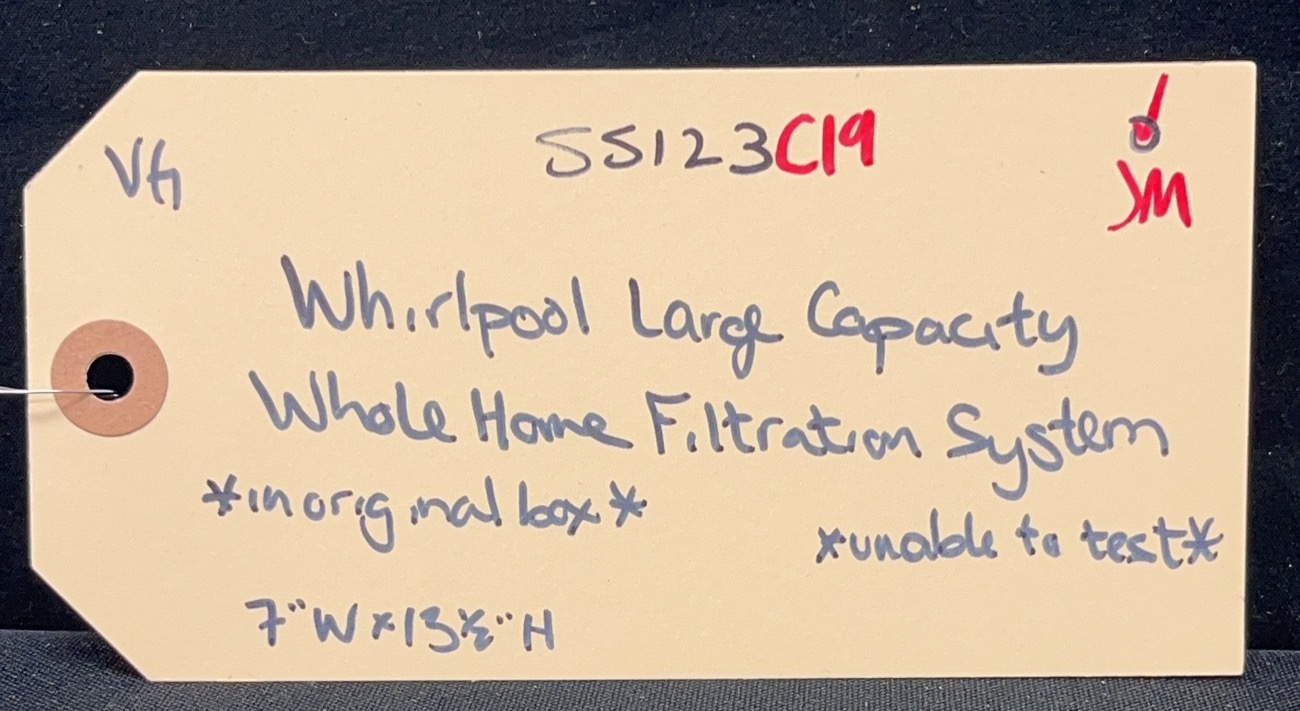 VG
SS123C19
JM
Whirlpool Large Capacity
Whole Home Filtration System
*in original box*
*unable to test*
7"W x 13½"H